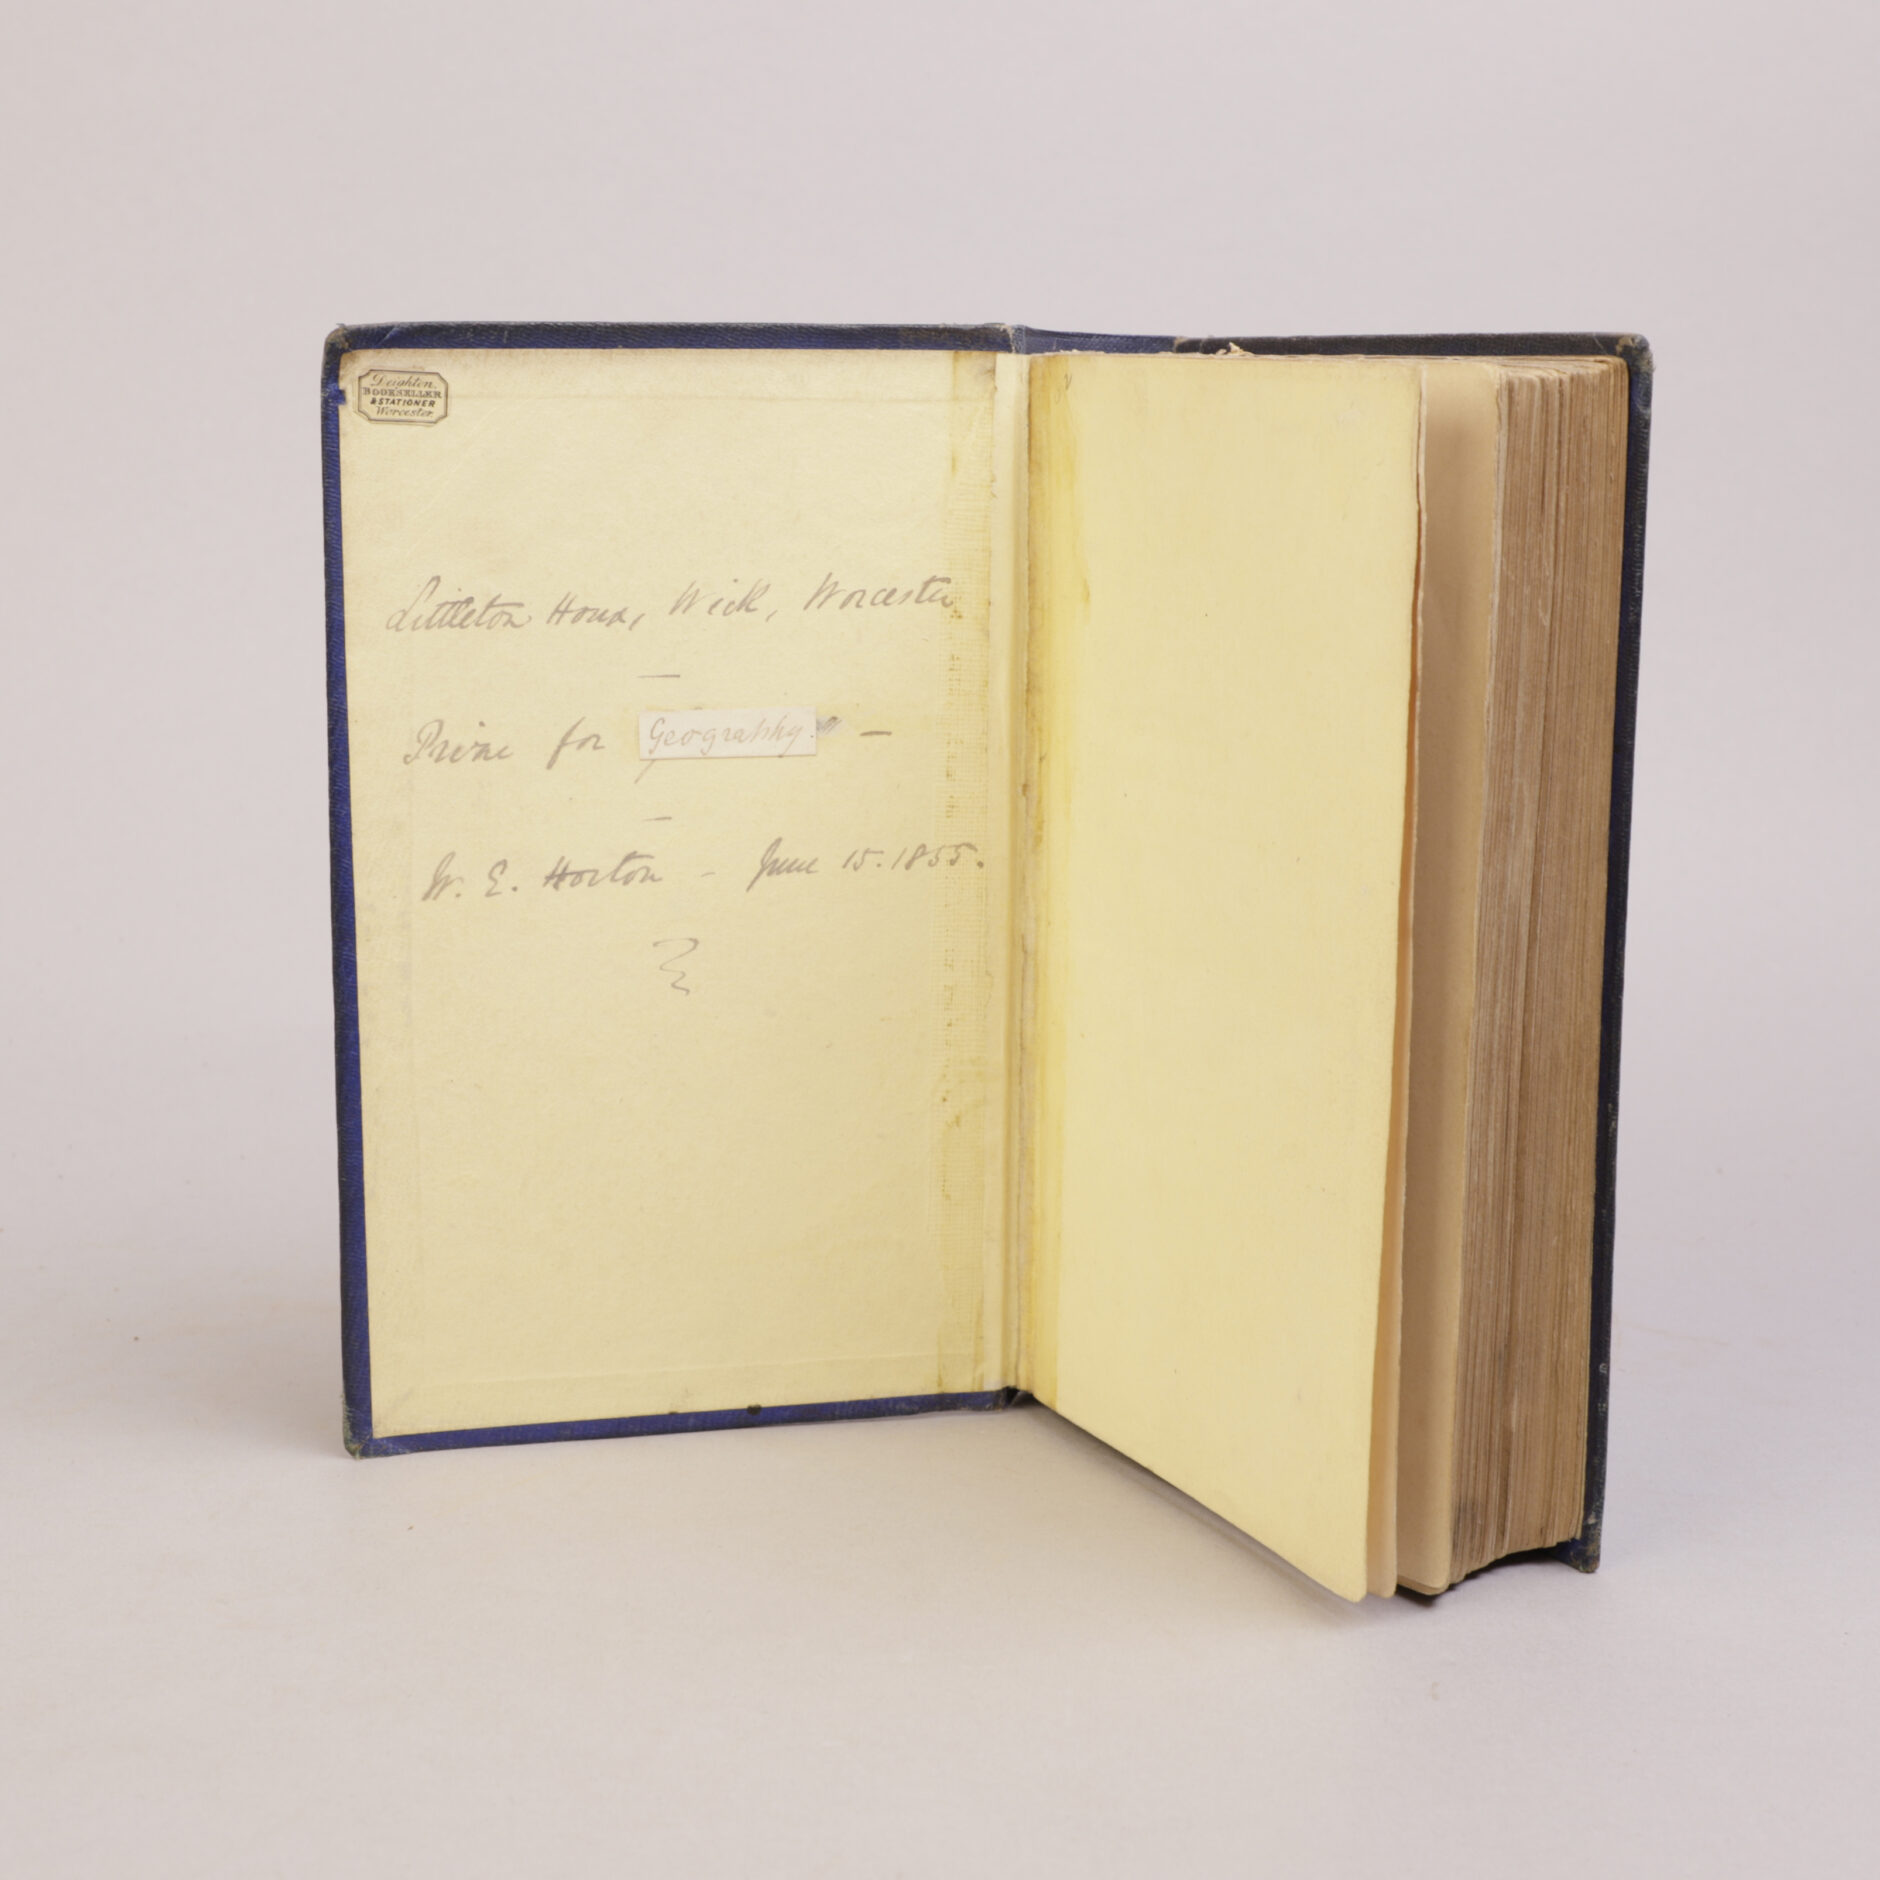 Deighton,
BOOKSELLER
& STATIONER
Worcester.
Littleton House, Wick, Worcester
—
Prize for Geography. —
—
W. E. Horton – June 15. 1855.